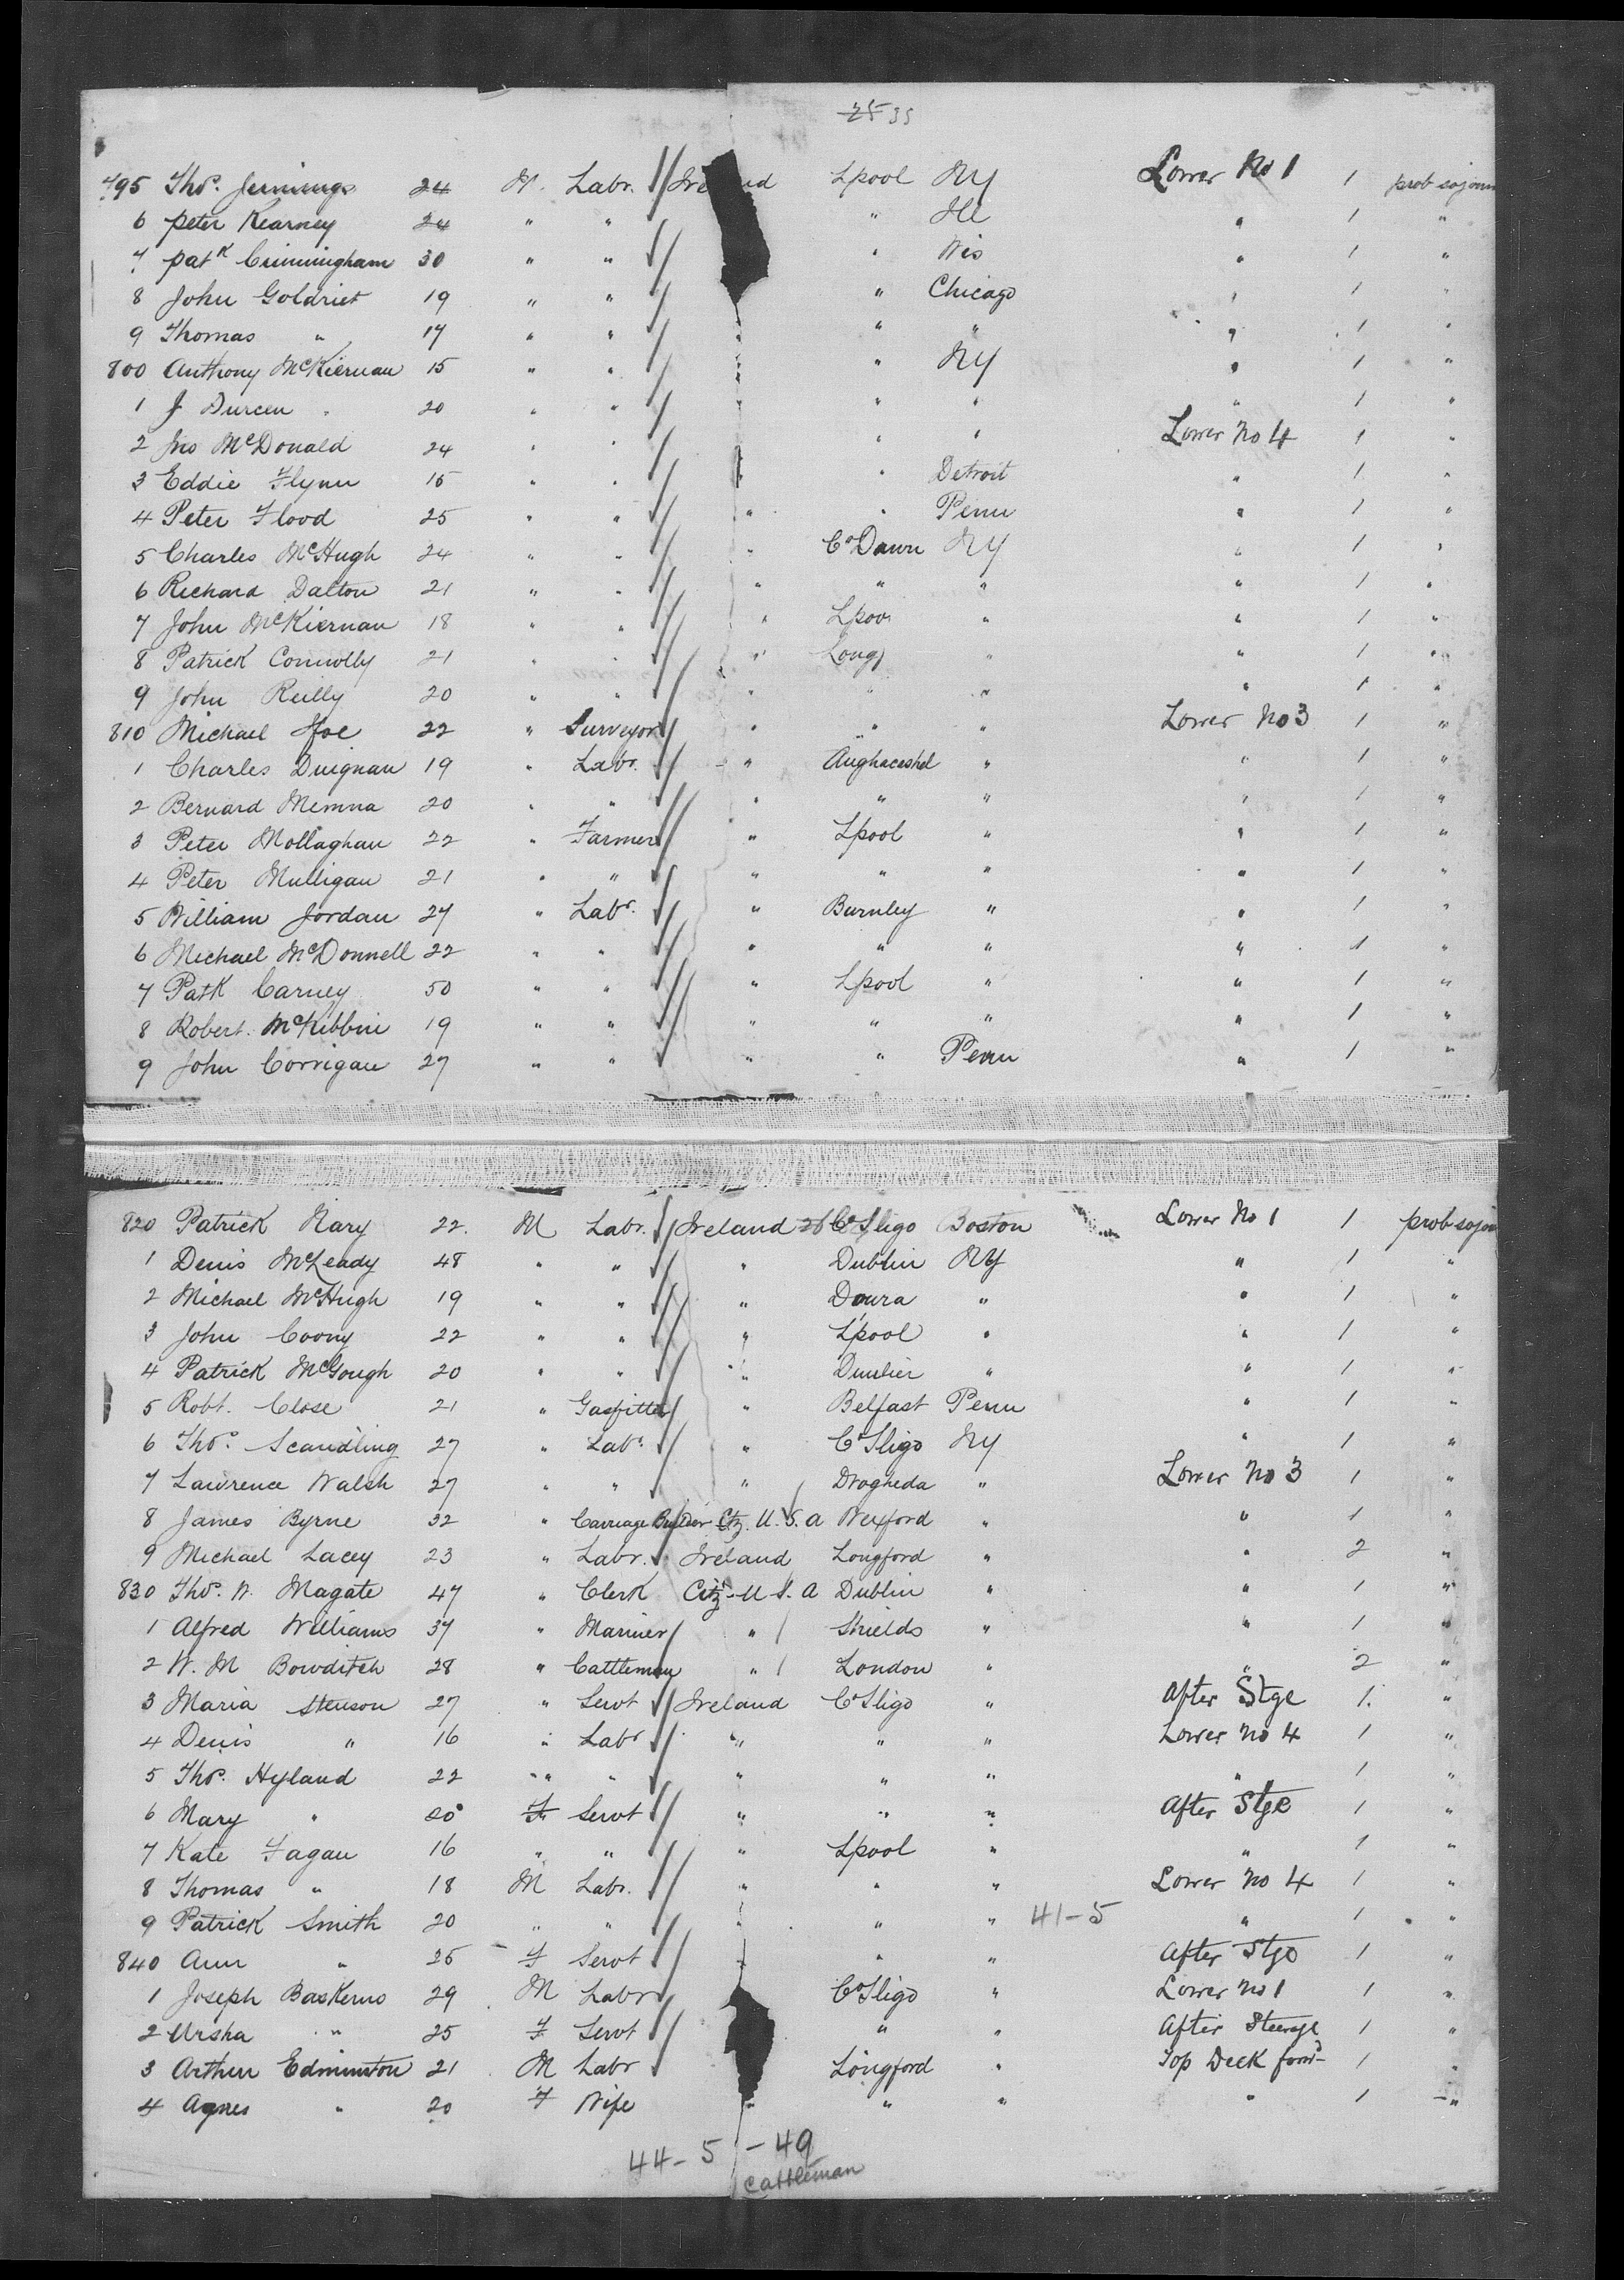 25 35
795 Thos. Jennings 24 M. Labr. Ireland Lpool NY Lower No 1 1 prob sojourn
6 Peter Kearney 24 " " " Ill " 1 "
7 Patk Cunningham 30 " " " Wis " 1 "
8 John Goldrict 19 " " " Chicago " 1 "
9 Thomas " 17 " " " " " " 1 "
800 Anthony McKiernan 15 " " " " NY " 1 "
1 J Durcen 20 " " " " " " 1 "
2 Jno McDonald 24 " " " " Lower No 4 1 "
3 Eddie Flynn 15 " " " Detroit " 1 "
4 Peter Flood 25 " " " " Penn " 1 "
5 Charles McHugh 24 " " " Co Dawn NY " 1 "
6 Richard Dalton 21 " " " " " " 1 "
7 John McKiernan 18 " " " Lpoo " " 1 "
8 Patrick Connolly 21 " " " Longf " " 1 "
9 John Reilly 20 " " " " " " 1 "
810 Michael Hoe 22 " Surveyor " " " Lower No 3 1 "
1 Charles Duignan 19 " Labr. " Aughacashel " " 1 "
2 Bernard Memna 20 " " " " " " 1 "
3 Peter Mollaghan 22 " Farmer " Lpool " " 1 "
4 Peter Mulligan 21 " " " " " " 1 "
5 William Jordan 27 " Labr. " Burnley " " 1 "
6 Michael McDonnell 22 " " " " " " 1 "
7 Patk Carney 50 " " " Lpool " " 1 "
8 Robert. McKibbin 19 " " " " " " 1 "
9 John Corrigan 27 " " " " Penn " 1 "
820 Patrick Nary 22. M Labr. Ireland 26 Co Sligo Boston Lower No 1 1 prob sojou
1 Denis McLeady 48 " " " Dublin NY " 1 "
2 Michael McHugh 19 " " " Doura " " 1 "
3 John Coony 22 " " " Lpool " " 1 "
4 Patrick McGough 20 " " " " " 1 "
5 Robt. Close 21 " Gasfitter " Belfast Penn " 1 "
6 Thos. Scandling 27 " Labr. " Co Sligo NY " 1 "
7 Lawrence Walsh 27 " " " Drogheda " Lower No 3 1 "
8 James Byrne 32 " Carriage Builder Ctz. U.S.A Wexford " " 1 "
9 Michael Lacey 23 " Labr. Ireland Longford " " 2 "
830 Thos. W. Magate 47 " Clerk Citz-U S. A Dublin " " 1 "
1 Alfred Williams 37 " Mariner " Shields " " 1 "
2 W. M Bowditch 28 " Cattleman " London " " 2 "
3 Maria Stenson 27 " Servt Ireland Co Sligo " After Stge 1. "
4 Denis " 16 " Labr " " " Lower No 4 1 "
5 Thos. Hyland 22 " " " " " " 1 "
6 Mary " 20 F Servt " " " After Stge 1 "
7 Kate Fagan 16 " " " Lpool " " 1 "
8 Thomas " 18 M Labr. " " " Lower No 4 1 "
9 Patrick Smith 20 " " " " " 41-5 " 1 "
840 Ann " 25 F Servt " " " After Stge 1 "
1 Joseph Baskerns 29 M Labr Co Sligo " Lower No 1 1 "
2 Ursha " 25 F Servt " " After Steerage 1 "
3 Arthur Edminston 21 M Labr Longford " Top Deck forrd 1 "
4 Agnes " 20 F Wife " " " " 1 "
44-5 - 49
cattleman